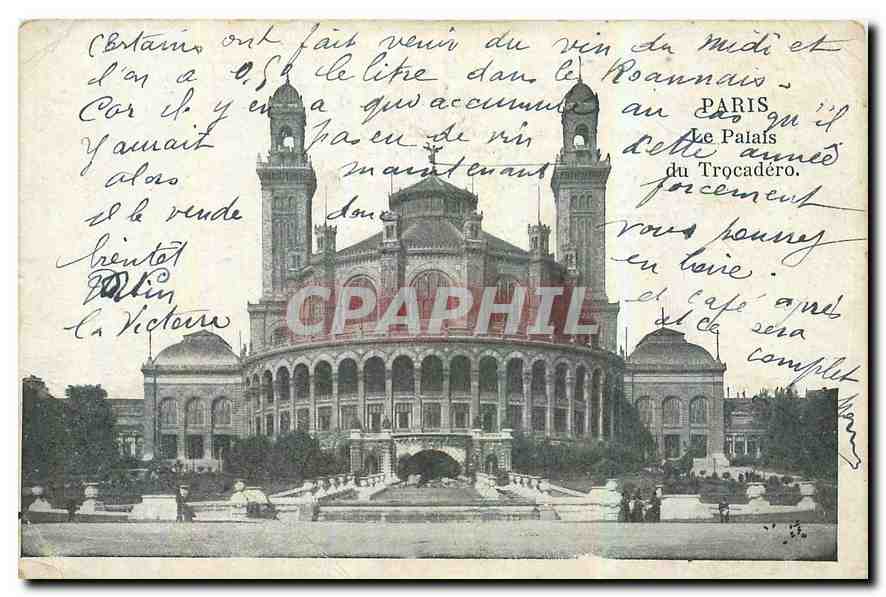 Certains ont fait venir du vin du Midi et
l'on a 0,50 le litre dans le Roannais.
Car il y en a qui accumule au cas qu'il
y aurait pas eu de vin cette année
maintenant
alors
donc
il le vende
bientôt
la Victoire
forcement
vous pourrez
en boire
et café après
et ce sera
complet
PARIS
Le Palais
du Trocadéro.
CAPHIL